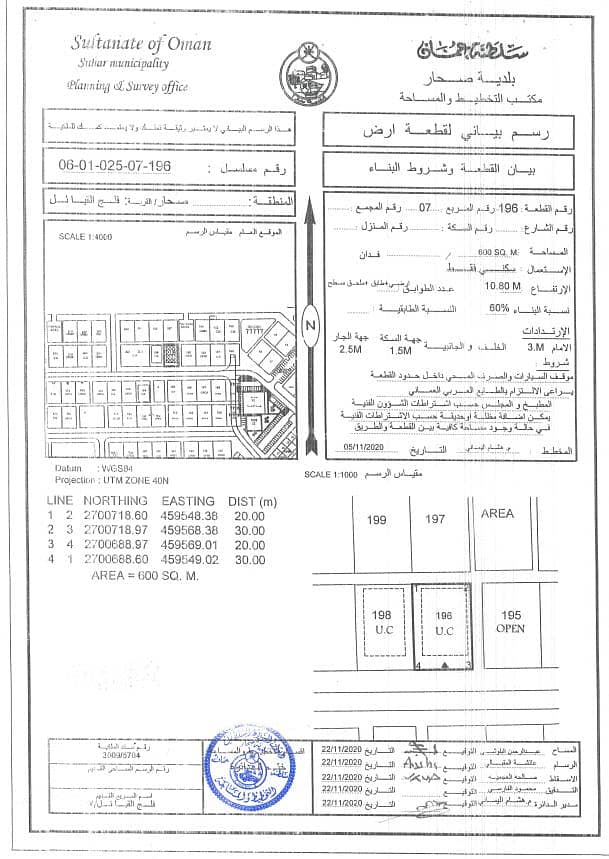 Sultanate of Oman
Suhar municipality
Planning & Survey office
سلطنة عمان
بلدية صحار
مكتب التخطيط والمساحة
هذا الرسم البياني لا يعتبر وثيقة تملك ولا يعتمد كسند للملكية
رسم بياني لقطعة ارض
رقم مسلسل : 06-01-025-07-196
بيان القطعة وشروط البناء
المنطقة: صحار/ القرية: فلج القبائل
الموقع العام مقياس الرسم
SCALE 1:4000
رقم القطعة: 196 رقم المربع 07 رقم المجمع
رقم الشارع : رقم السكة : رقم المنزل :
المساحة 600 SQ. M. / فدان
الإستعمال : سكني فقط
الإرتفاع 10.80 M عدد الطوابق أرضي+طابق+ملحق سطح
نسبة البناء 60% النسبة الطابقية :
الإرتدادات
الامام 3.M الخلف و الجانبية 1.5M جهة السكة جهة الجار 2.5M
شروط :
موقف السيارات والصرف الصحي داخل حدود القطعة
يراعى الالتزام بالطابع العربي العماني
المطبخ و المجلس حسب اشتراطات الشؤون الفنية
يمكن اضافة مظلة اوحديقة حسب الاشتراطات الفنية
في حالة وجود مساحة كافية بين القطعة والطريق
المخطط : م. هشام اليساني التاريخ 05/11/2020
N
Datum : WGS84
Projection : UTM ZONE 40N
SCALE 1:1000 مقياس الرسم
LINE NORTHING EASTING DIST (m)
1 2 2700718.60 459548.38 20.00
2 3 2700718.97 459568.38 30.00
3 4 2700688.97 459569.01 20.00
4 1 2700688.60 459549.02 30.00
AREA = 600 SQ. M.
199
197
AREA
198
U.C
1
2
196
U.C
4
3
195
OPEN
رقم سند الملكية
3009/5704
رقم الرسم المساحي القديم
اسم المربع القديم
فلج القبائل/٧
المساح عبدالرحمن البلوشي التوقيع التاريخ 22/11/2020
الرسام عائشة المقبالي التوقيع التاريخ 22/11/2020
الاسقاط صالحه التوقيع التاريخ 22/11/2020
التدقيق محمود الفارسي التوقيع التاريخ 22/11/2020
مدير الدائرة م. هشام اليساني التوقيع التاريخ 22/11/2020